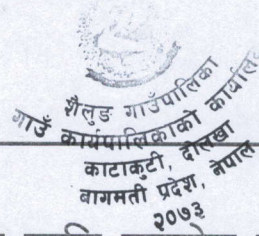 शैलुङ गाउँपालिका
गाउँ कार्यपालिकाको कार्यालय
काटाकुटी, दोलखा
वागमती प्रदेश, नेपाल
२०७३